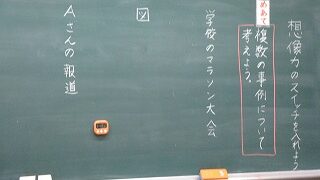 想像力のスイッチを入れよう
めあて
複数の事例について
考えよう。
学校のマラソン大会
図
Aさんの報道